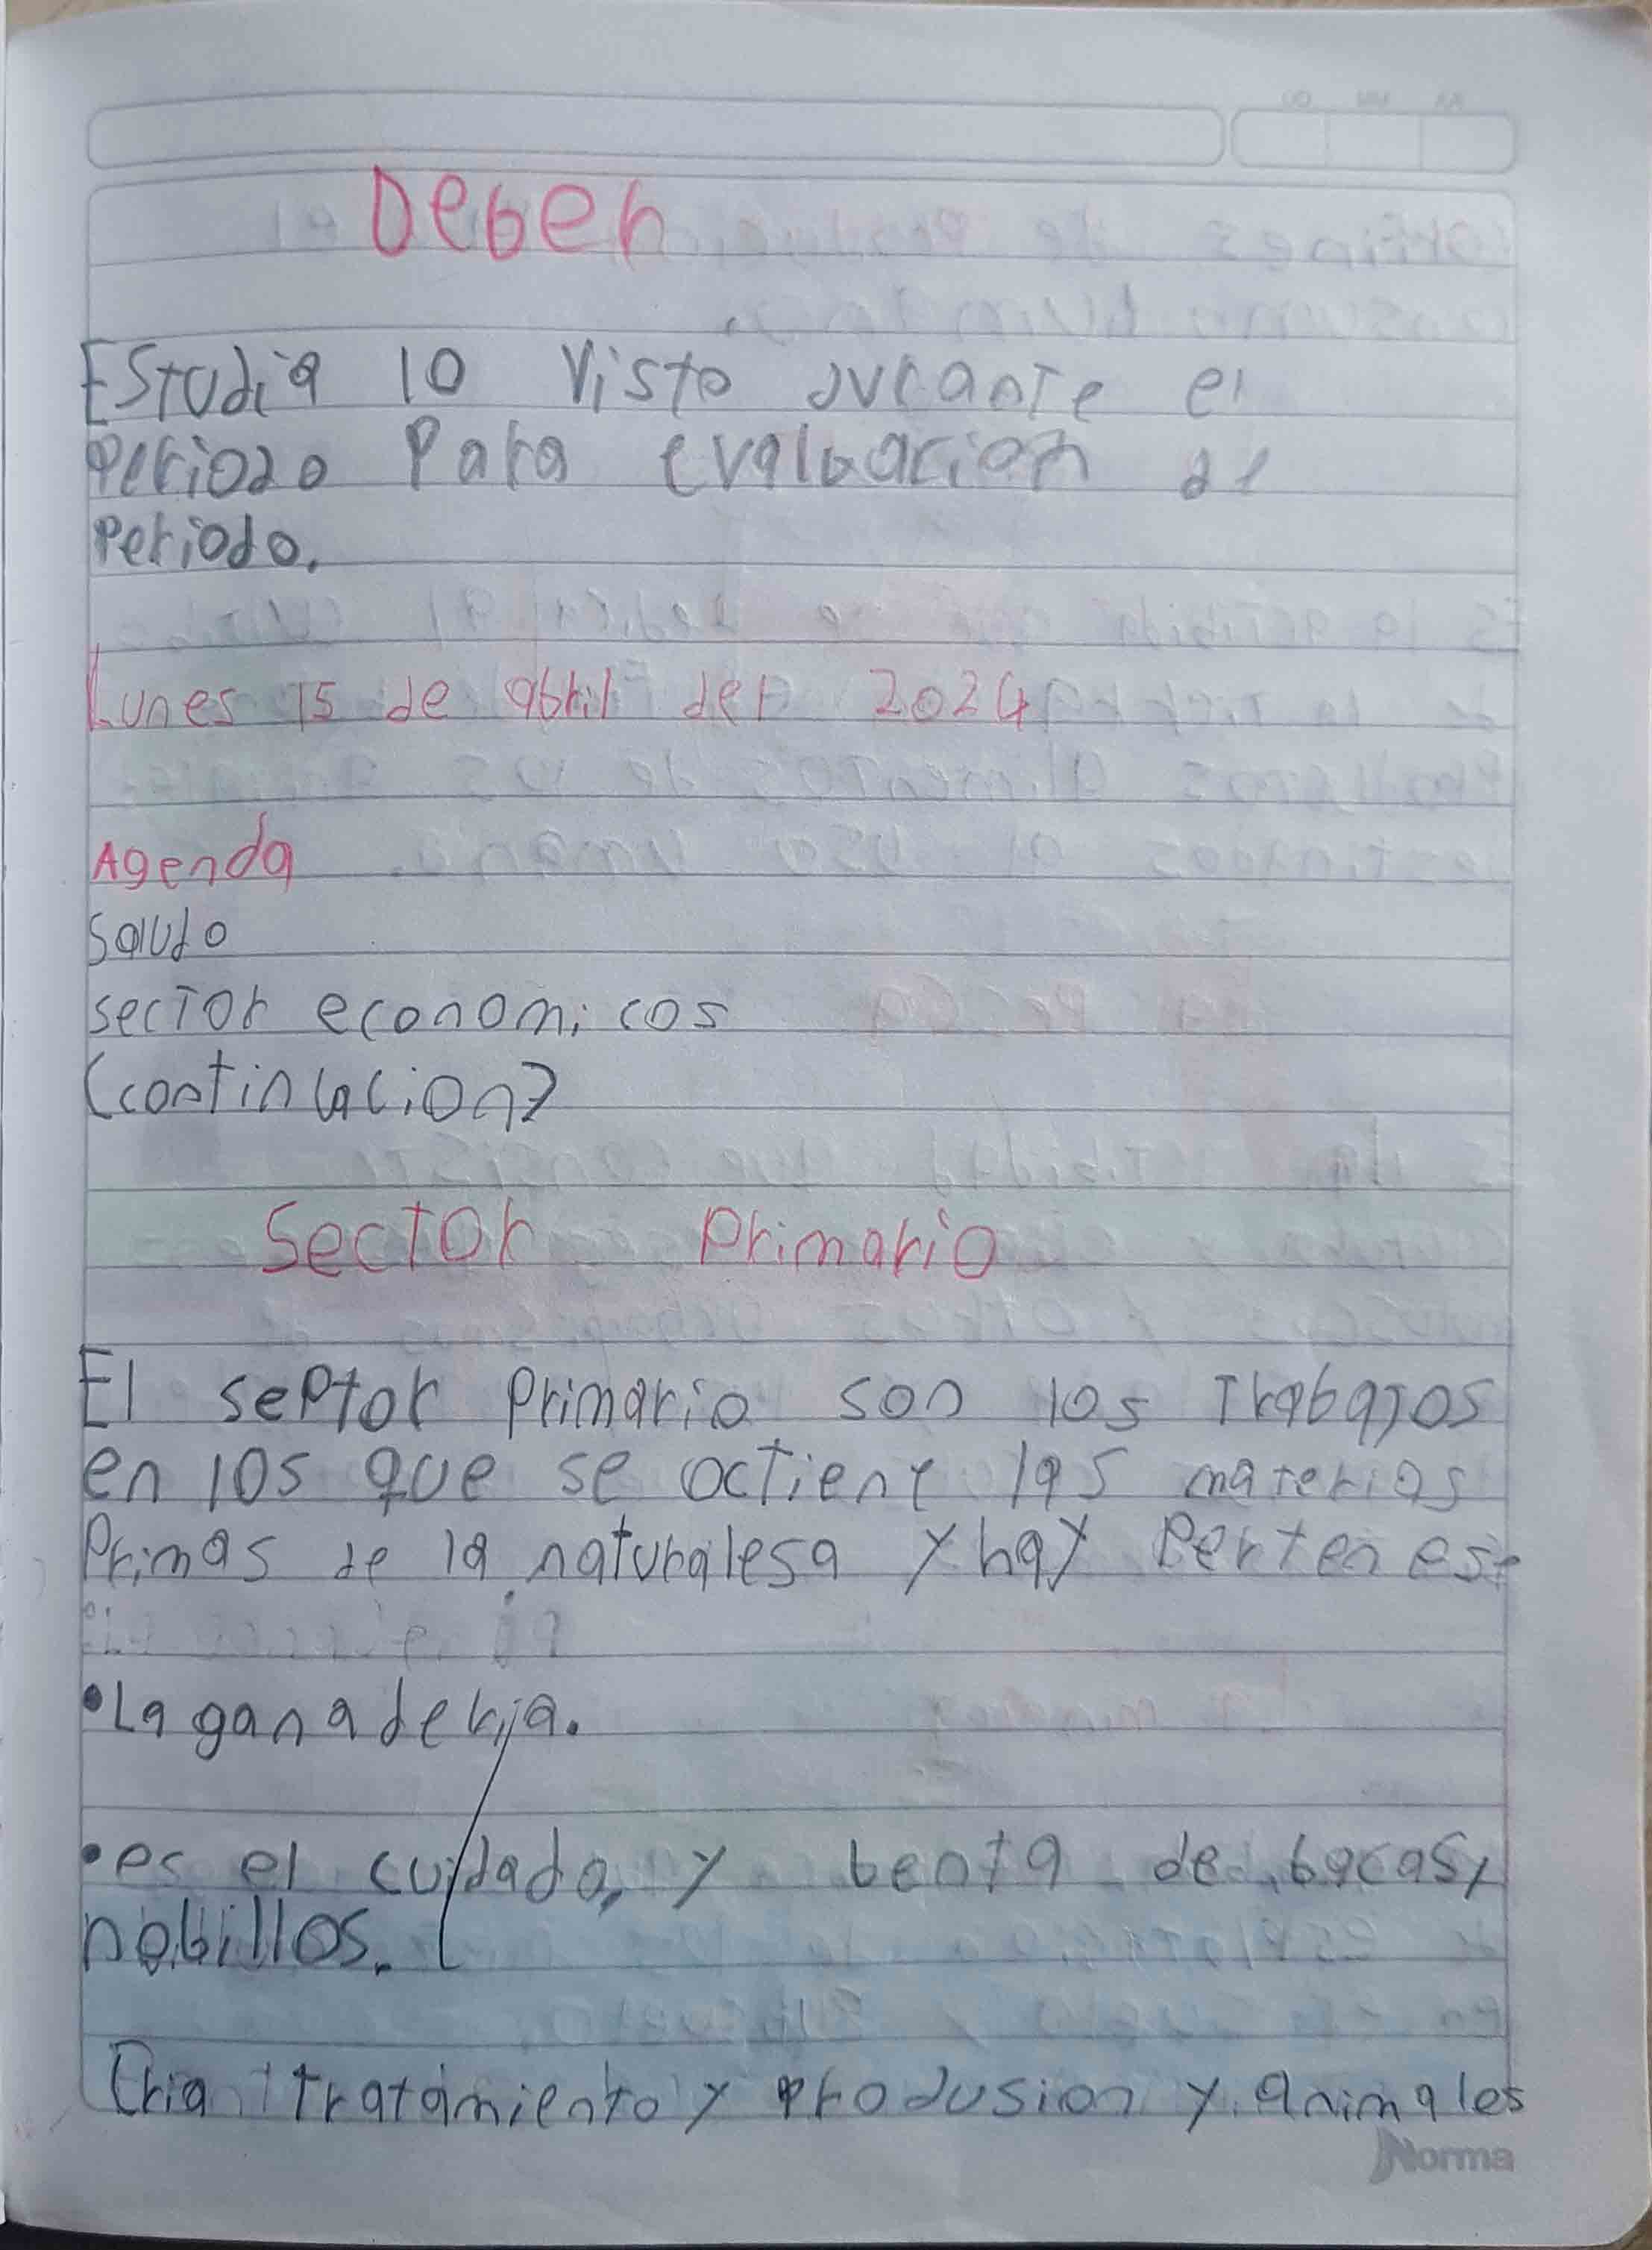 Deber
Estudia lo visto durante el
periodo Para evaluacion de
Periodo.
Lunes 15 de abril del 2024
Agenda
Saludo
sector economicos
(continuacion)
Sector Primario
El septor Primario son los Trabajos
en los que se octiene las materias
Primas de la naturalesa y hay Pertenese
•La ganaderia.
•es el cuidado, y benta de bacas,
nobillos.
Cria tratamiento y produsion y animales
Norma